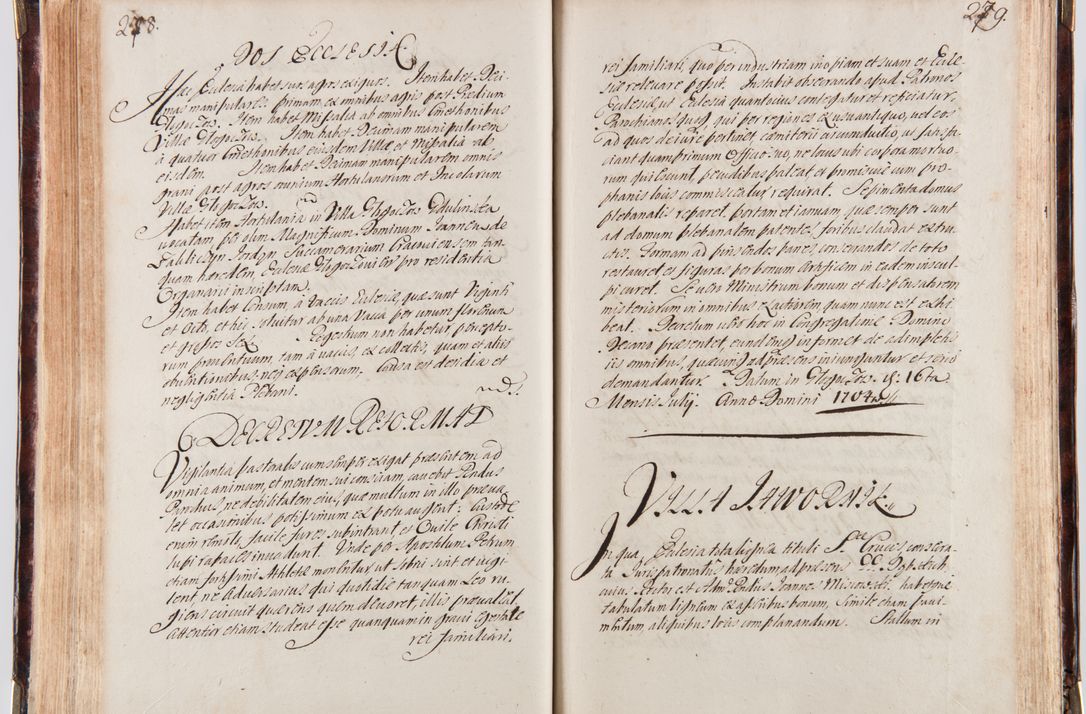 278.
DOS ECCLESIÆ
Hæc Ecclesia habet suos agros exiguos. Item habet Deci-
mas manipulares. Primam ex omnibus agris post Prædium
Głogoczow. Item habet Missalia ab omnibus Cmethonibus
Villæ Głogoczow. Item habet Decimam manipularem
à quatuor Cmethonibus eiusdem Villæ et Missalia ab
eisdem. Item habet Decimam manipularem omnis
grani post agros omnium Hortulanorum et Incolarum
Villæ Głogoczow.
Habet item Hortulaniā in Villa Głogoczow
vocatam per olim Magnificum Dominum Joannem de
Zakliczyn Jordan, Succamerarium Cracoviensem tan-
quam hæredem, Ecclesiæ Głogocoviensi pro residentia
Organarii inscriptam.
Item habet Censum à Vaccis Ecclesiæ, quæ sunt Viginti
et Octo, et hic solvitur ab una Vacca per unum florenum
et grossos Sex. Regestrum non habetur percepto-
rum proventuum, tam à vaccis, ex collectis, quam et aliis
obventionibus neq expensorum. Causa est desidia et
negligentia Plebani.
DECRETUM REFORMAT
Vigilantia pastoralis cum semper exigat præsentem ad
omnia animum, et mentem sui consciam, caverit Pndus
Parochus, ne debilitatem eius, quæ multum in illo præva-
let occasionibus potissimum ex potu augeat: Custode
enim remisso, facile fures subintrant, et Ovile Christi
lupi rapaces invadunt. Unde per Apostolum Petrum
etiam fortissimi Athletæ monentur ut sobrii sint et vigi-
lent, ne Adversarius qui quotidie tanquam Leo ru-
giens circuit quærens quem devoret, illis prævaleat
Attentior etiam studeat esse quanquam in gravi egestate
rei familiari,
279.
rei familiari, quo per industriam inopiam et suam et Eccle-
siæ relevare possit. Instabit obsecrando apud Patronos
Ecclesiæ, ut Ecclesia quantocius contegatur et reficiatur,
Parochianos quoq qui per regiones ex usu antiquo, vel eos
ad quos de iure pertinet cæmiterii circumductio, ut satisfa-
ciant quamprimum Officio suo, ne locus ubi corpora mortuo-
rum quiescunt, pecudibus pateat et promiscue cum pro-
phanis locis commisceatur, requirat. Sepimenta domus
plebanalis reparet, portam et ianuam, quæ semper sunt
ad domum plebanalem patentes, foribus claudat extru-
ctis. Formam ad pinsendos panes consecrandos de toto
restauret, et figuras per bonum Artificem in eadem inscul-
pi curet. Se vero Ministrum bonum et dispensatorem
misteriorum in omnibus exactiorem quam nunc est exhi-
beat. Decretum ubi hoc in Congregatione Domino
Decano præsentet, eundemq informet de adimpletis
iis omnibus, quæcunq ad præsens iniunguntur et serio
demandantur. Datum in Głogoczow d: 16ta
Mensis Julij. Anno Domini 1704.
VILLA JAWORNIK.
In qua, Ecclesia tota lignea tituli S.æ Crucis consecra-
ta Jurispatronatus hæredum ad præsens
Rector est Adm. Pndus Joannes habetque
tabulatum ligneum ex asseribus bonum, Simile etiam pavi-
mentum, aliquibus locis complanandum. Stallum in